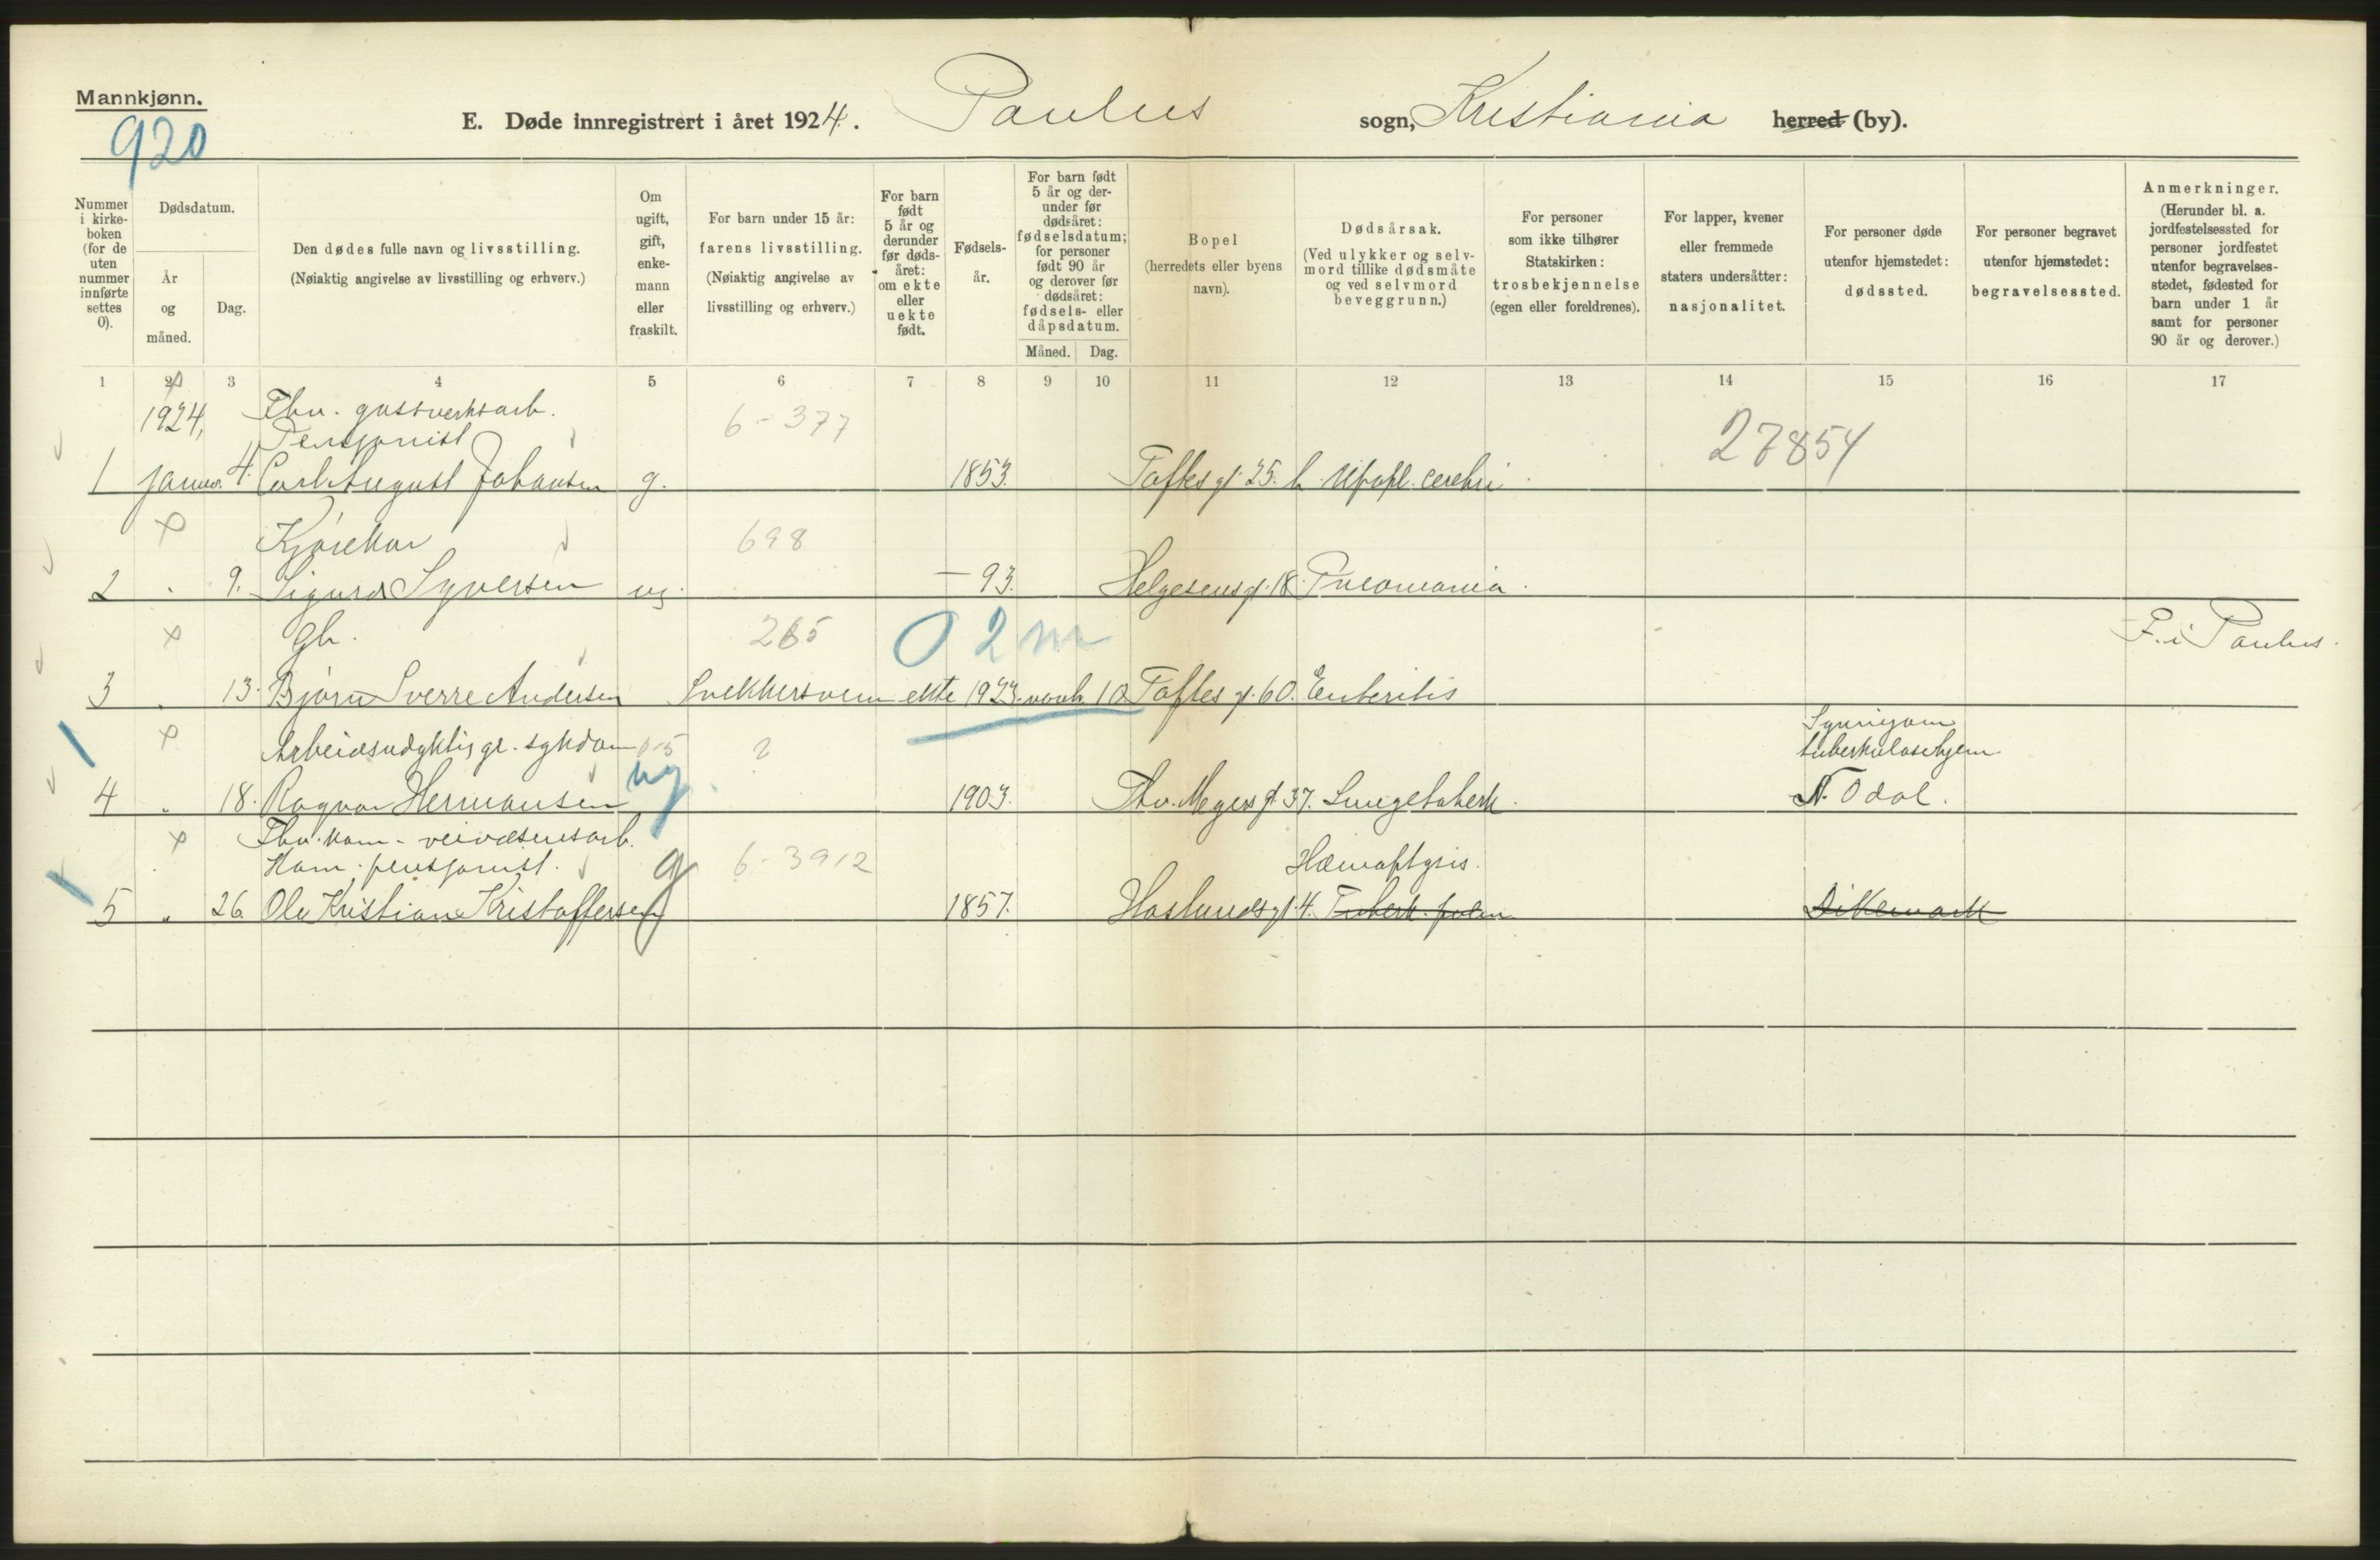 Mannkjønn.
920
E. Døde innregistrert i året 1924. Paulus sogn, Kristiania herred (by).
Nummer i kirkeboken (for de uten nummer innførte settes 0).
Dødsdatum.
År og måned.
Dag.
Den dødes fulle navn og livsstilling.
(Nøiaktig angivelse av livsstilling og erhverv.)
Om ugift, gift, enkemann eller fraskilt.
For barn under 15 år: farens livsstilling.
(Nøiaktig angivelse av livsstilling og erhverv.)
For barn født 5 år og derunder før dødsåret: om ekte eller uekte født.
Fødselsår.
For barn født 5 år og derunder før dødsåret: fødselsdatum; for personer født 90 år og derover før dødsåret: fødsels- eller dåpsdatum.
Måned.
Dag.
Bopel (herredets eller byens navn).
Dødsårsak.
(Ved ulykker og selvmord tillike dødsmåte og ved selvmord beveggrunn.)
For personer som ikke tilhører Statskirken: trosbekjennelse (egen eller foreldrenes).
For lapper, kvener eller fremmede staters undersåtter: nasjonalitet.
For personer døde utenfor hjemstedet: dødssted.
For personer begravet utenfor hjemstedet: begravelsessted.
Anmerkninger.
(Herunder bl. a. jordfestelsessted for personer jordfestet utenfor begravelsesstedet, fødested for barn under 1 år samt for personer 90 år og derover.)
1 2 3 4 5 6 7 8 9 10 11 12 13 14 15 16 17
1924, Fhv. gassverksarb. 6-377 27854
Pensjonist
1 januar. 4. Carl August Johansen g. 1853. Toftes gt. 25. b Apopl. cerebri.
Kjørekar 698
2 . 9. Sigurd Syversen ug. -93. Helgesens gt. 18. Pneomonia.
gb. 265 0 2 m F. i Paulus.
3 . 13. Bjørn Sverre Andersen Snekkersvenn ekte 1923. novb. 10 Toftes gt. 60. Enteritis
Arbeidsudyktig gr. sykdom ? tuberkulosehjem.
4 . 18. Ragnar Hermansen ug. 1903. Thv. Meyers gt. 37. Lungetuberk. N. Odal.
Fhv. kom. veivæsensarb.
Kom. pensjonist. g 6-3912 Hæmoptysis.
5 " 26. Ole Kristian Kristoffersen 1857. Haslunds gt. 4. Tuberk. pulm Dikemark